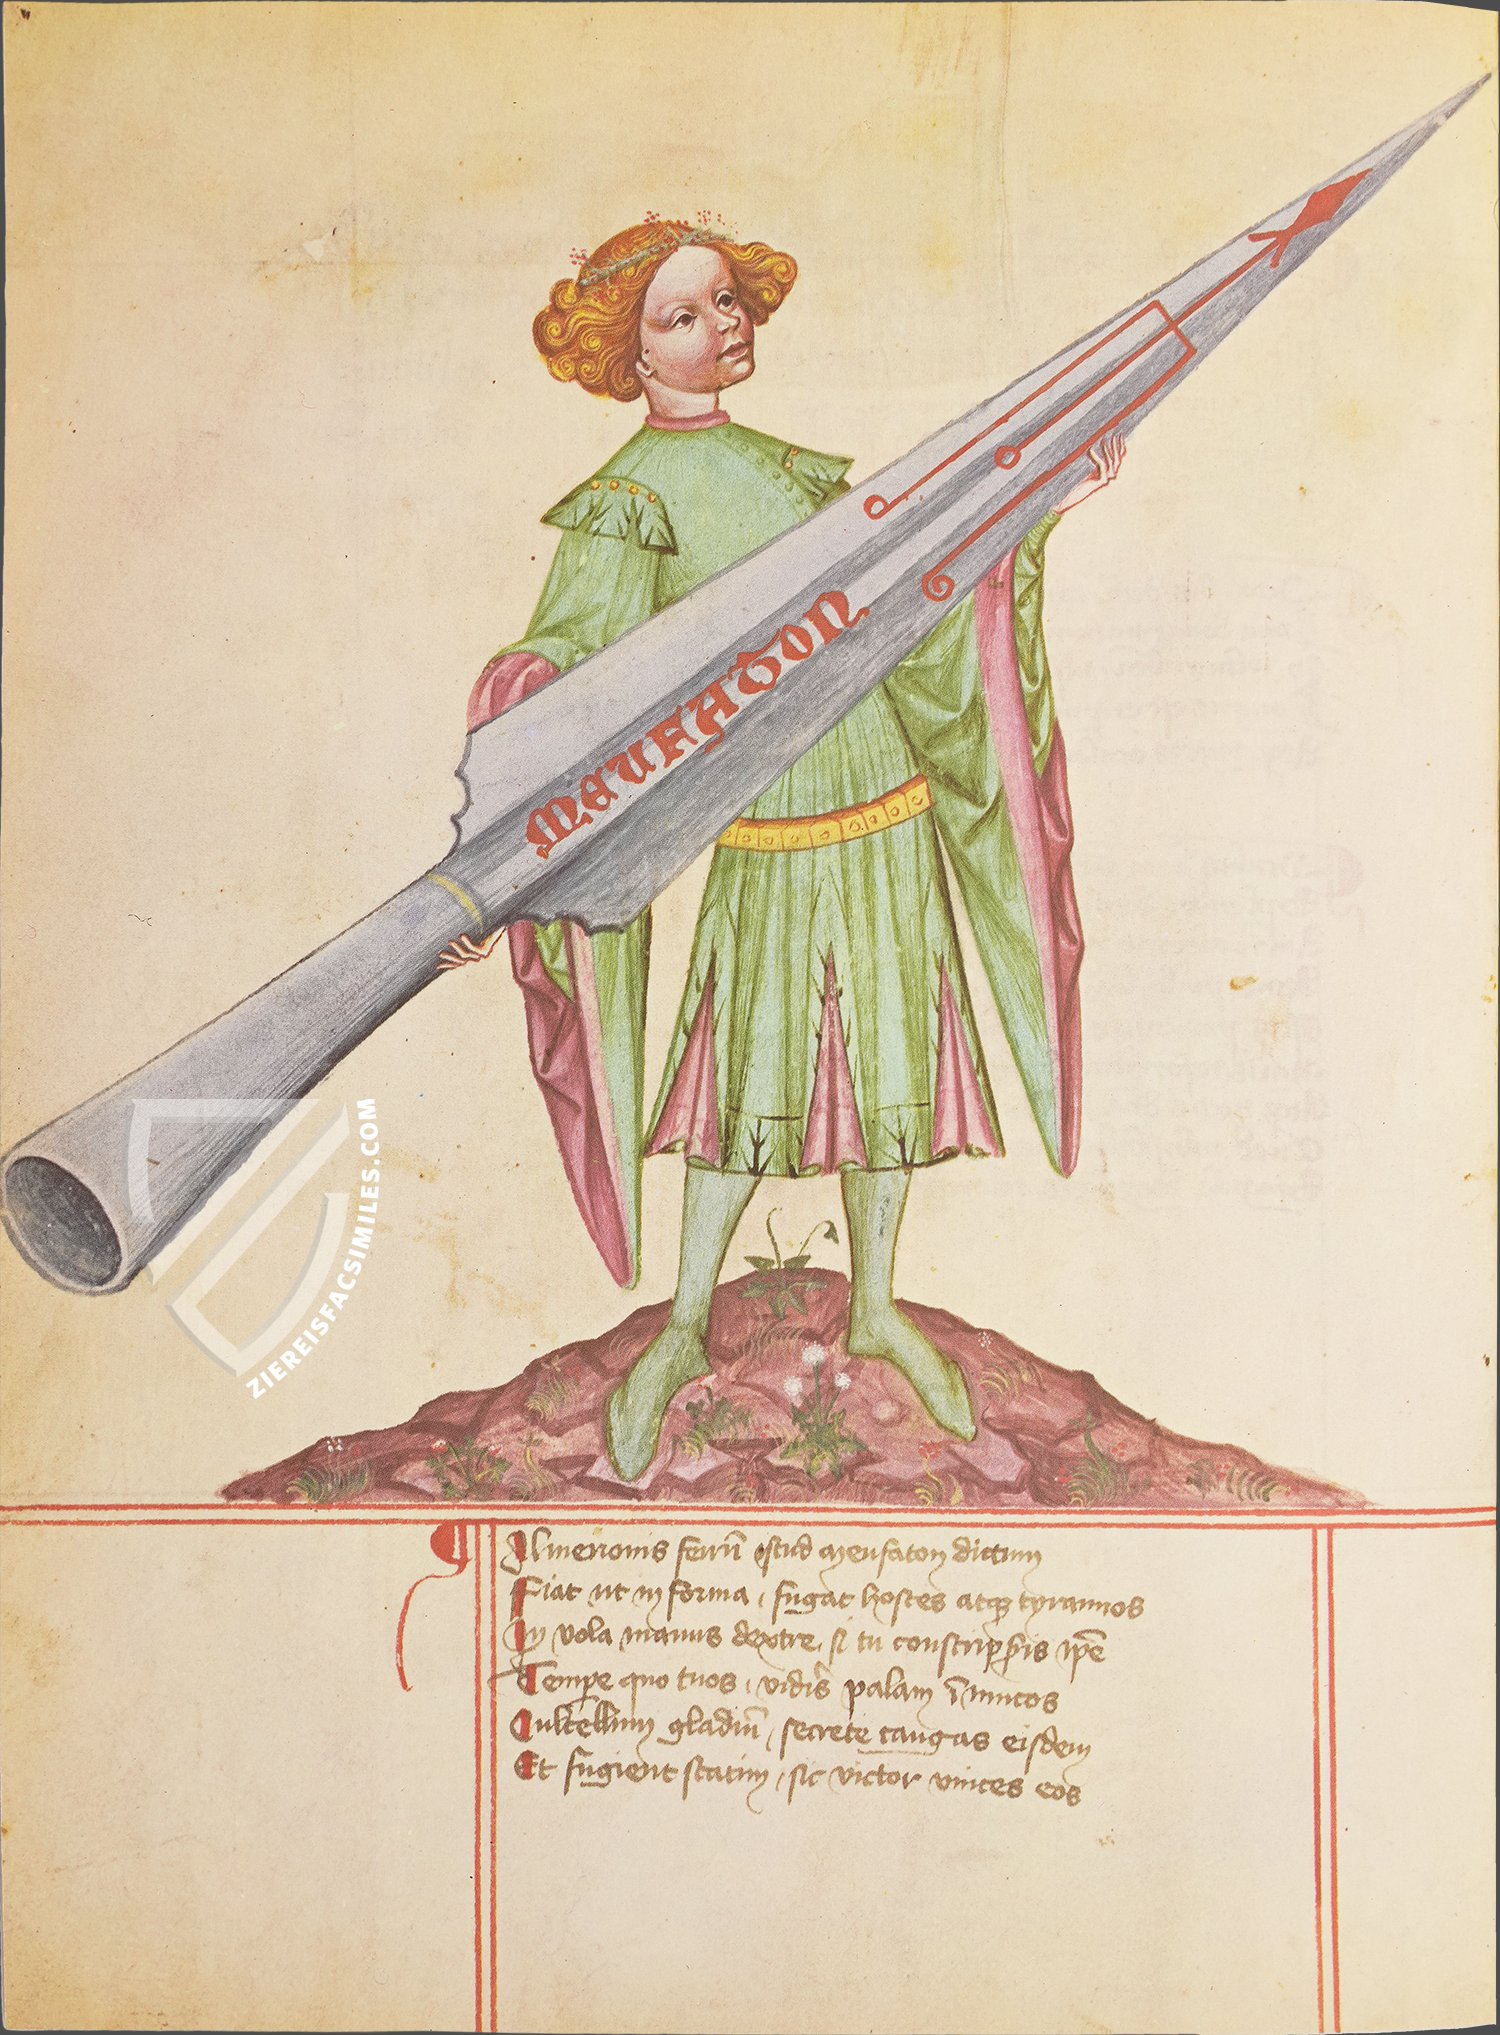 MEUFATON
ZIEREISFACSIMILES.COM
Almerionis ferrū istud meufaton dictum
Fiat ut in forma, fugat hostes atqꝫ tyrannos
In vola manus dextre, si tu conscripseris ipē
Tempe quo tuos, videris palam īimicos
Cultellum gladiū, secrete tangas eisdem
Et fugient statim, sic victor vinces eos